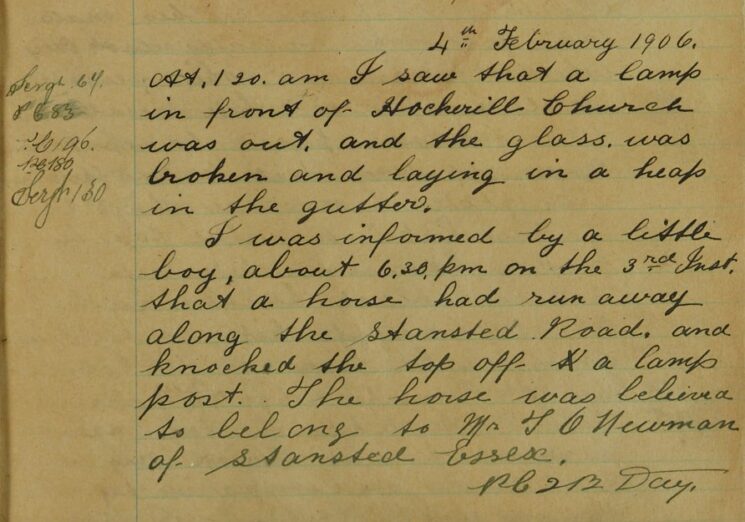 4th February 1906.
Sergt 64.
PC 83
At. 1 20. am I saw that a lamp
in front of Hockerill Church
PC 196.
was out. and the glass. was
PC 180
broken and laying in a heap
Sergt 130
in the gutter.
I was informed by a little
boy, about 6.30. pm on the 3rd Inst.
that a horse had run away
along the Stansted Road. and
knocked the top off a lamp
post. The horse was believed
to belong to Mr T O Newman
of Stansted Essex.
PC Day.